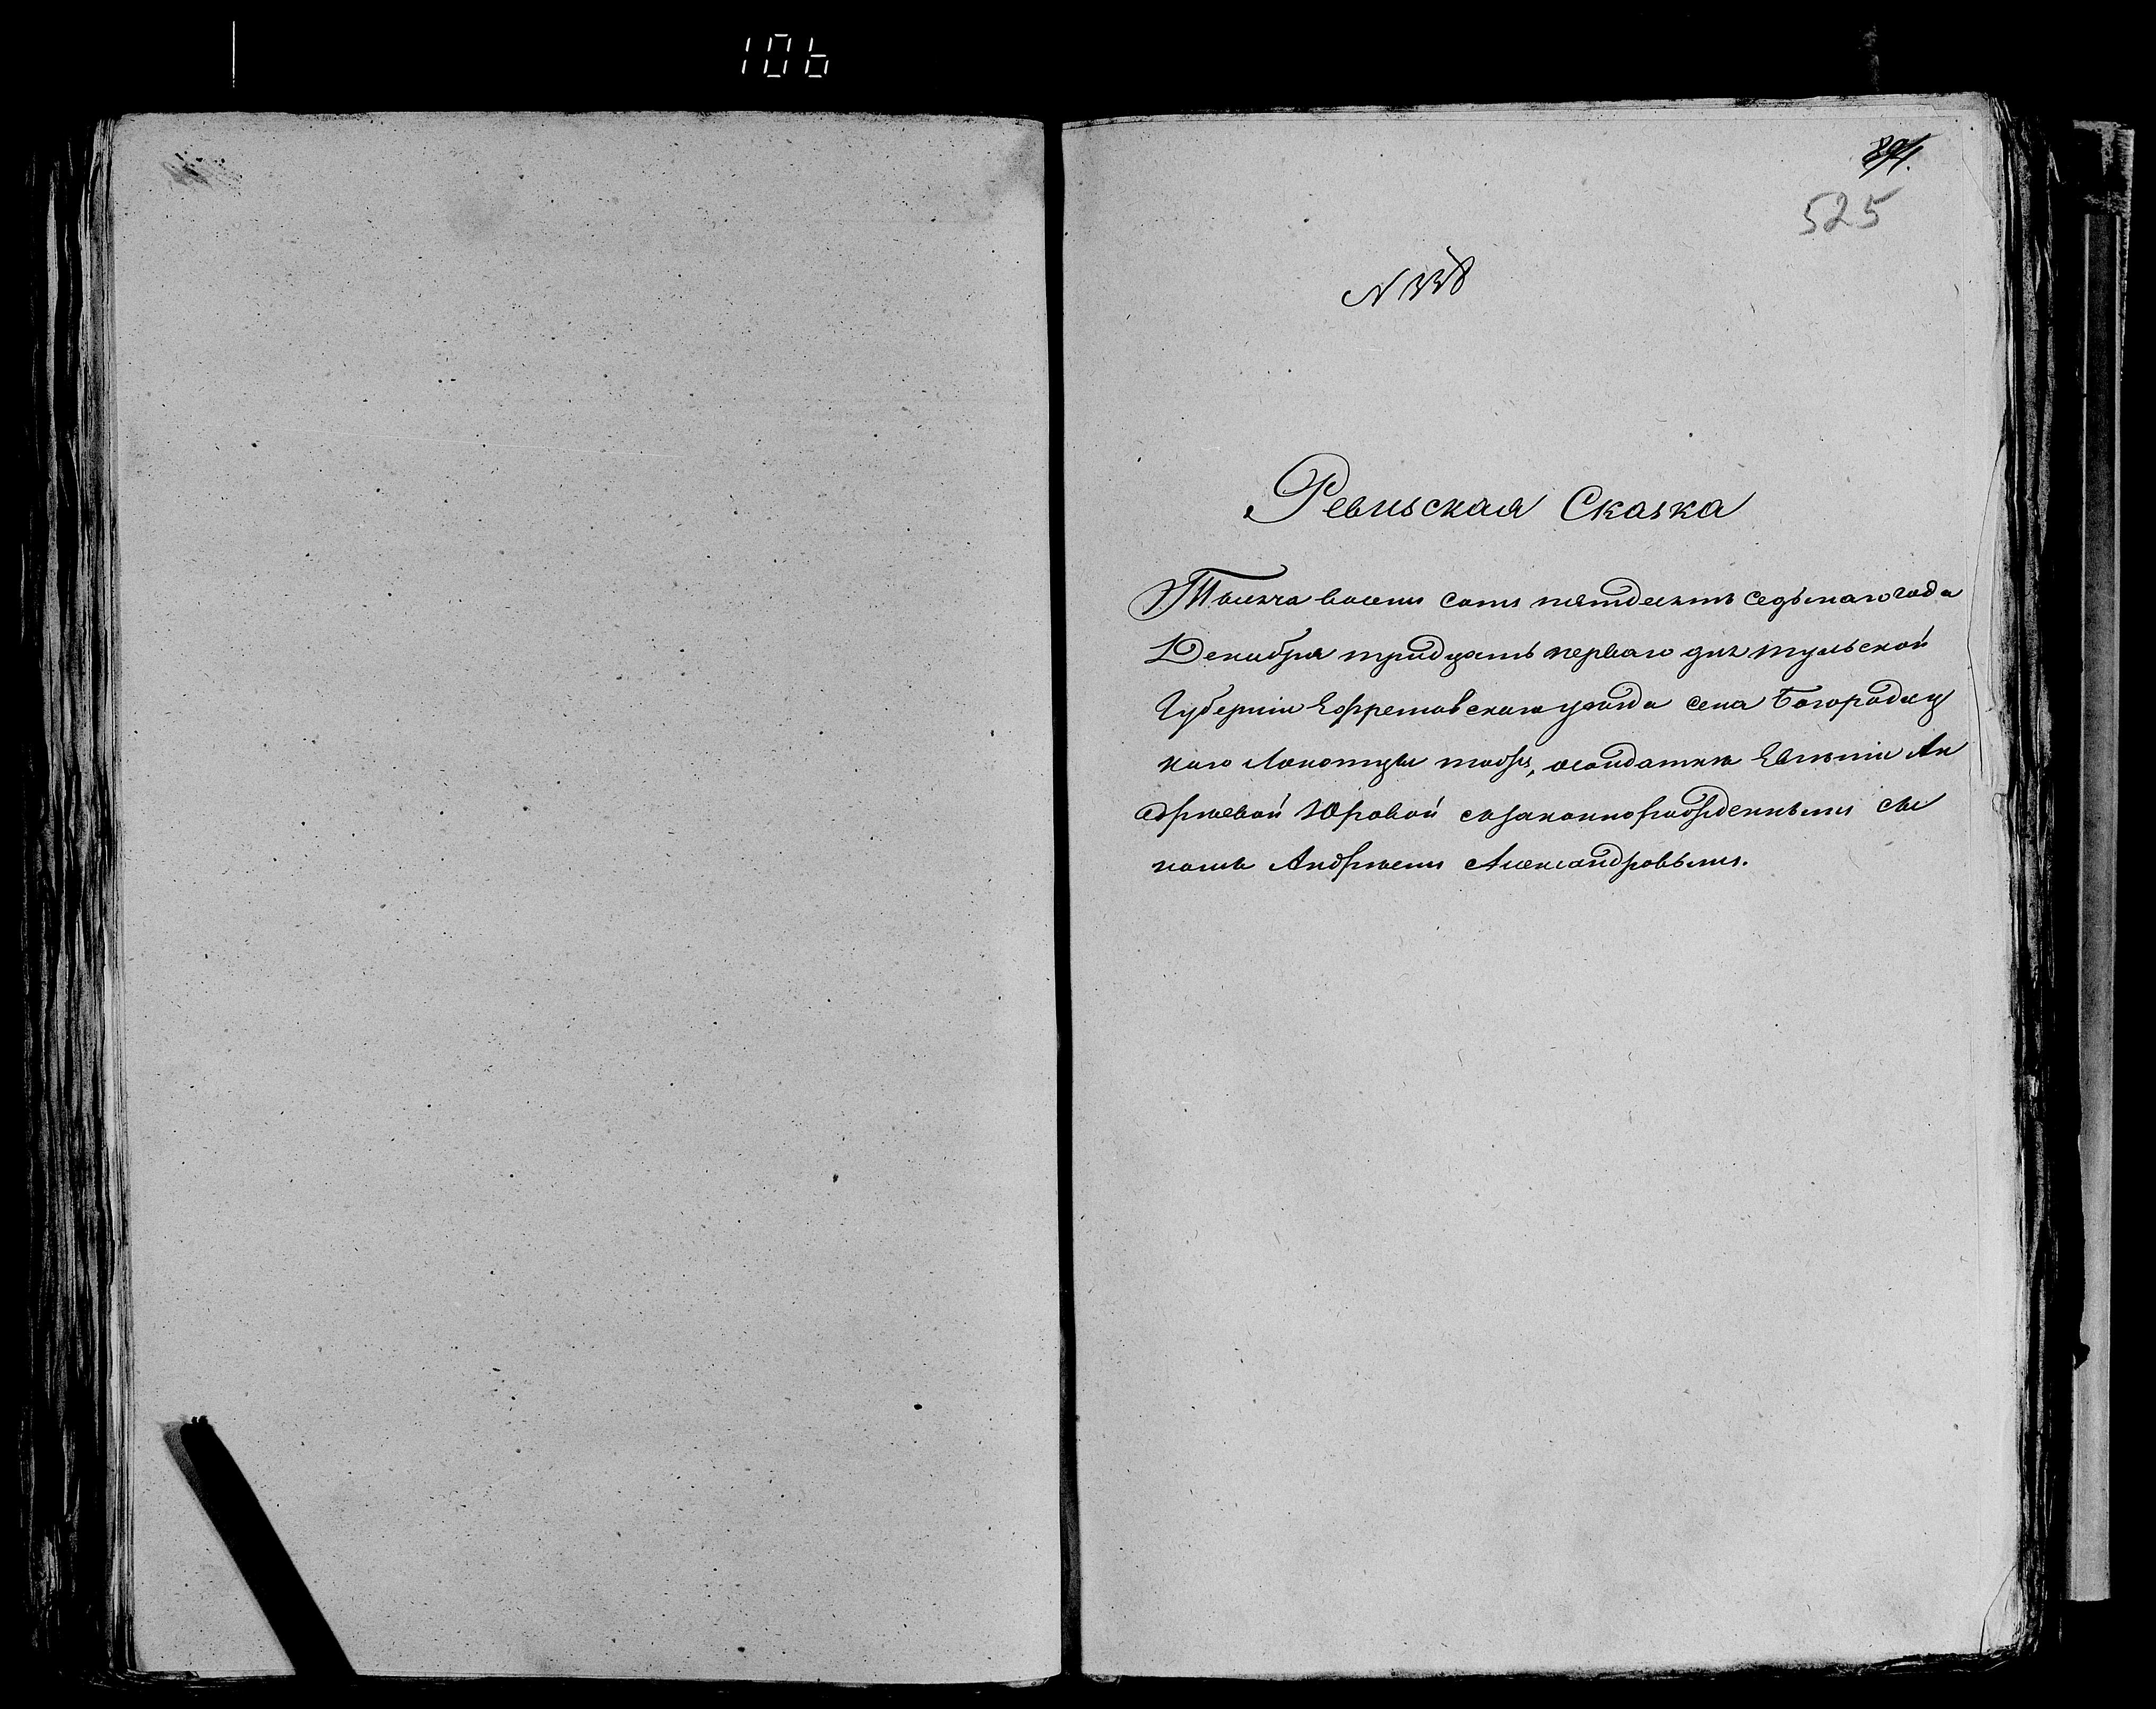 106
894.
525
N 338
Ревиская Сказка
Тысяча восемь сотъ пятдесятъ седьмаго года
Декабря тридцать перваго дня Тульской
Губерніи Ефремовскаго уѣзда села Богородиц
каго Локотцы тожъ, солдатки Евгеніи Ан
дрѣевой Юровой съзаконнорожденнымъ сы
номъ Андрѣемъ Александровымъ.